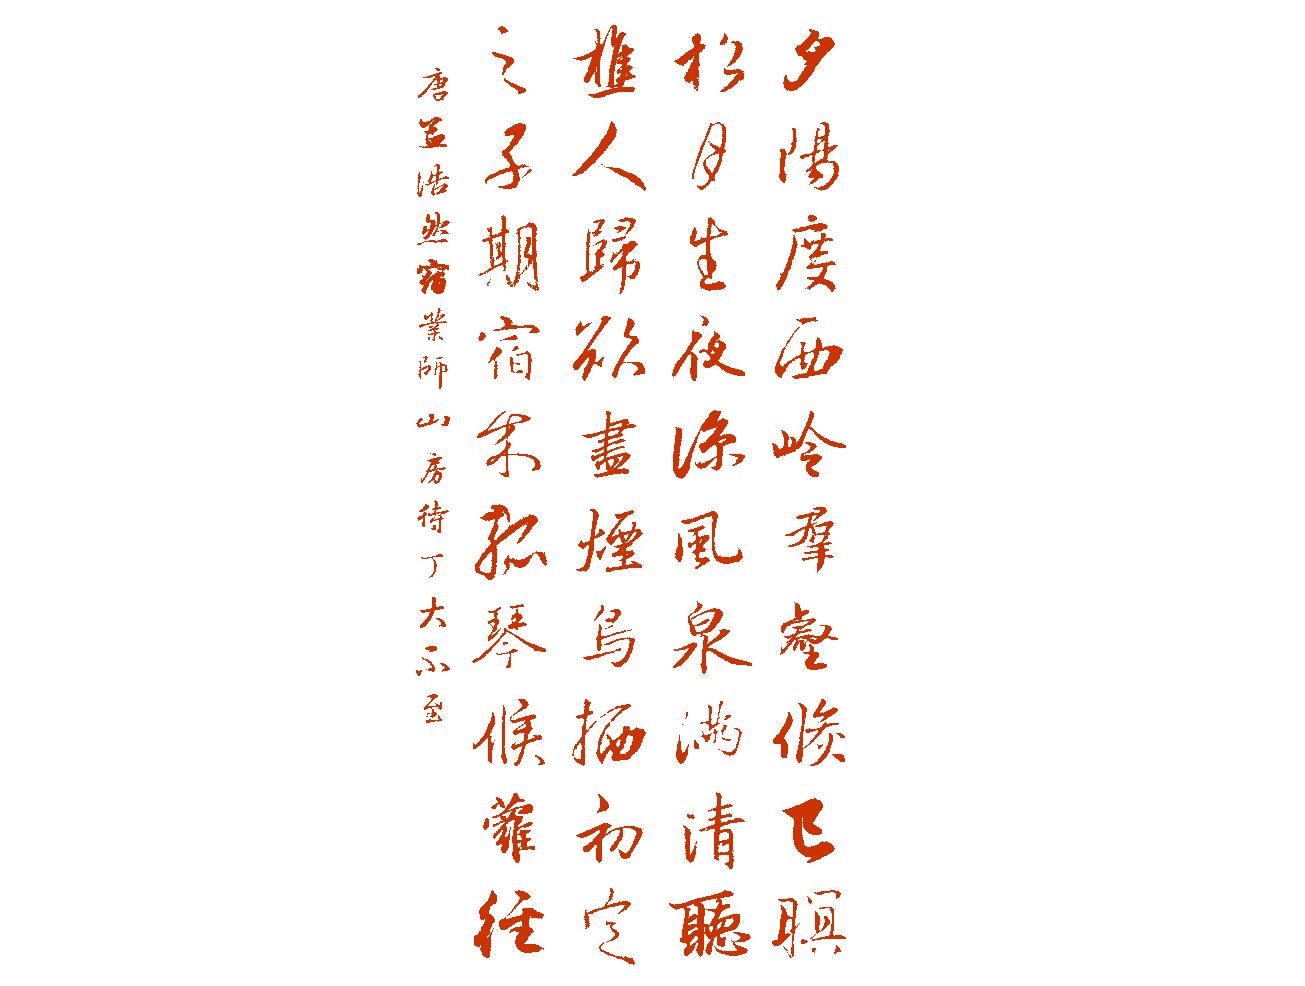 夕陽度西岭羣壑倐已暝
松月生夜涼風泉満清聽
樵人歸欲盡煙鳥栖初定
之子期宿来孤琴候蘿徑
唐孟浩然宿業師山房待丁大不至